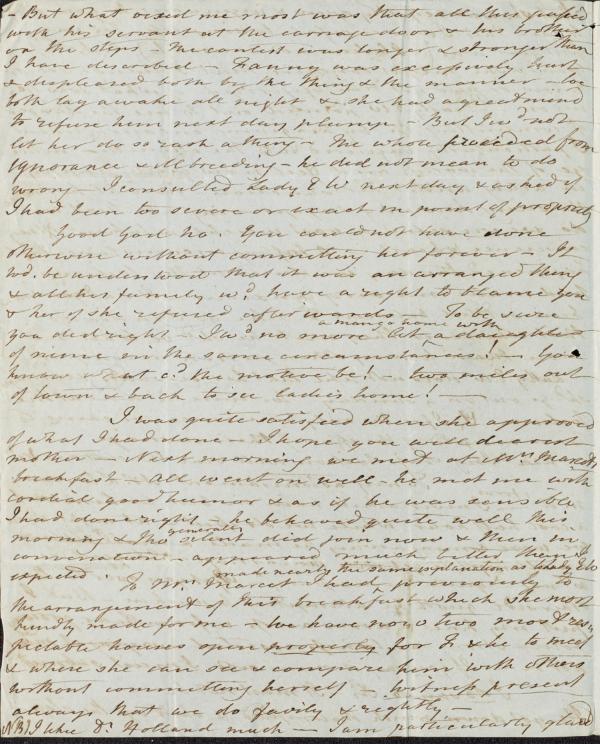 – But what vexed me most was that all this passed
with his servant at the carriage door & his brother
on the steps – The contest was longer & stronger than
I have described – Fanny was excessively hurt
& displeased both by the thing & the manner – we
both lay awake all night & she had a great mind
to refuse him next day plump – But I wd. not
let her do so rash a thing – The whole proceeded from
ignorance & ill breeding – he did not mean to do
wrong – I consulted Lady E W next day & asked if
I had been too severe or exact in point of propriety
Good God no! You could not have done
otherwise without committing her forever – It
wd. be understood that it was an arranged thing
& all his family wd. have a right to blame you
& her if she refused afterwards – To be sure
you did right – I wd. no more let a man go home with a daughter
of mine in the same circumstances! – You
know what cd. the motive be! – two miles out
of town & back to see ladies home! –
I was quite satisfied when she approved
of what I had done – I hope you will dearest
mother – Next morning we met at Mrs Marcet's
breakfast – all went on well – he met me with
cordial good humor & as if he was sensible
I had done right – he behaved quite well this
morning & tho generally silent did join now & then in
conversation – appeared much better than I
expected. To Mrs Marcet I had made nearly the same explanation as to Lady E W previously to
the arrangement of this breakfast which she most
kindly made for me – We have now two most res-
pectable houses open properly for F & he to meet
& where she can see & compare him with others
without committing herself – witness present
always that we do fairly & rightly –
NB) I like Dr. Holland much – I am particularly glad